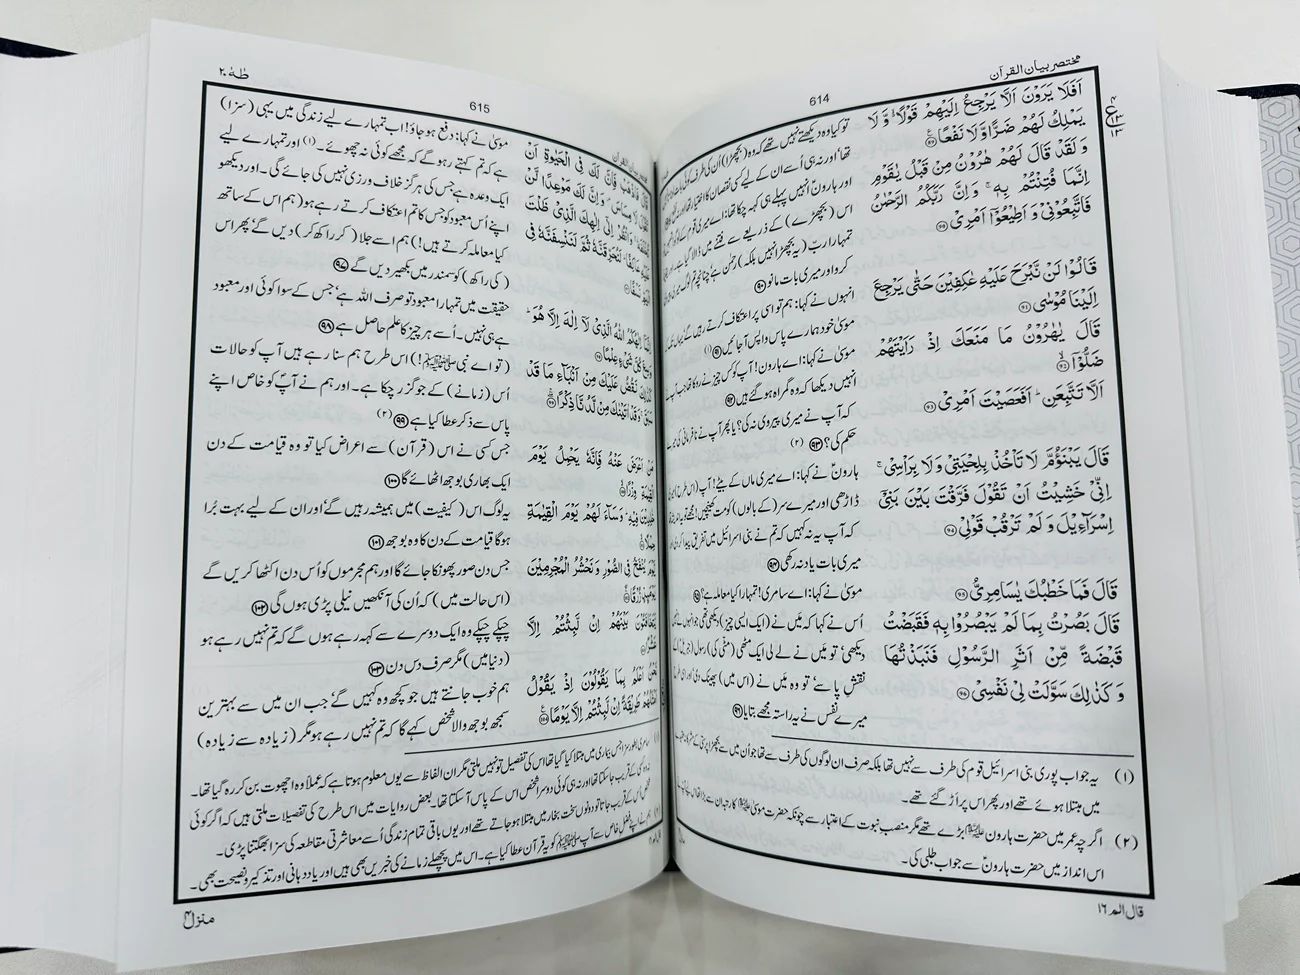 مختصر بیان القرآن
614
اَفَلَا يَرَوْنَ اَلَّا يَرْجِعُ اِلَيْهِمْ قَوْلًا ۙ وَّلَا
يَمْلِكُ لَهُمْ ضَرًّا وَّلَا نَفْعًا ﴿۸۹﴾
وَلَقَدْ قَالَ لَهُمْ هٰرُوْنُ مِنْ قَبْلُ يٰقَوْمِ
اِنَّمَا فُتِنْتُمْ بِهٖ ۚ وَاِنَّ رَبَّكُمُ الرَّحْمٰنُ
فَاتَّبِعُوْنِيْ وَاَطِيْعُوْٓا اَمْرِيْ ﴿۹۰﴾
قَالُوْا لَنْ نَّبْرَحَ عَلَيْهِ عٰكِفِيْنَ حَتّٰى يَرْجِعَ
اِلَيْنَا مُوْسٰى ﴿۹۱﴾
قَالَ يٰهٰرُوْنُ مَا مَنَعَكَ اِذْ رَاَيْتَهُمْ
ضَلُّوْٓا ﴿۹۲﴾
اَلَّا تَتَّبِعَنِ ؕ اَفَعَصَيْتَ اَمْرِيْ ﴿۹۳﴾
قَالَ يَبْنَؤُمَّ لَا تَاْخُذْ بِلِحْيَتِيْ وَلَا بِرَاْسِيْ ۚ
اِنِّيْ خَشِيْتُ اَنْ تَقُوْلَ فَرَّقْتَ بَيْنَ بَنِيْٓ
اِسْرَآءِيْلَ وَلَمْ تَرْقُبْ قَوْلِيْ ﴿۹۴﴾
قَالَ فَمَا خَطْبُكَ يٰسَامِرِيُّ ﴿۹۵﴾
قَالَ بَصُرْتُ بِمَا لَمْ يَبْصُرُوْا بِهٖ فَقَبَضْتُ
قَبْضَةً مِّنْ اَثَرِ الرَّسُوْلِ فَنَبَذْتُهَا
وَكَذٰلِكَ سَوَّلَتْ لِيْ نَفْسِيْ ﴿۹۶﴾
تو کیا وہ دیکھتے نہیں تھے کہ وہ (بچھڑا) اُن کی طرف کوئی
تھا، اور نہ ہی اُسے ان کے لیے کسی نقصان کا اختیار تھا اور نہ
اور ہارونؑ انہیں پہلے ہی کہہ چکا تھا: اے میری قوم کے
اس (بچھڑے) کے ذریعے سے فتنے میں ڈالا گیا ہے۔ اور
تمہارا ربّ (یہ بچھڑا نہیں بلکہ) رحمٰن ہے چنانچہ تم لوگ میری
کرو اور میری بات مانو ﴿۹۰﴾
انہوں نے کہا: ہم تو اسی پر اعتکاف کرتے رہیں گے یہاں تک
موسیٰؑ خود ہمارے پاس واپس آ جائیں ﴿۹۱﴾ (۱)
موسیٰؑ نے کہا: اے ہارون! آپ کو کس چیز نے روکا تھا جب آپ نے
انہیں دیکھا کہ وہ گمراہ ہو گئے ہیں ﴿۹۲﴾
کہ آپ نے میری پیروی نہ کی؟ یا پھر آپ نے نافرمانی کی میرے
حکم کی؟ ﴿۹۳﴾ (۲)
ہارونؑ نے کہا: اے میری ماں کے بیٹے! آپ (اس طرح) میری
ڈاڑھی اور میرے سر (کے بالوں) کو مت کھینچیں! مجھے تو یہ اندیشہ
کہ آپ یہ نہ کہیں کہ تم نے بنی اسرائیل میں تفریق پیدا کر دی
میری بات یاد نہ رکھی ﴿۹۴﴾
موسیٰؑ نے کہا: اے سامری! تمہارا کیا معاملہ ہے؟ ﴿۹۵﴾
اُس نے کہا کہ میں نے (ایک ایسی چیز) دیکھی تھی جو انہوں نے
دیکھی، تو میں نے لے لی ایک مٹھی (مٹی کی) رسول (جبریل) کے
نقشِ پا سے، تو وہ میں نے (اس میں) پھینک دی اور اسی طرح
میرے نفس نے یہ راستہ مجھے بتایا ﴿۹۶﴾
(۱) یہ جواب پوری بنی اسرائیل قوم کی طرف سے نہیں تھا بلکہ صرف ان لوگوں کی طرف سے تھا جو اُن میں سے بچھڑا پرستی کے شرک
میں مبتلا ہوئے تھے اور پھر اس پر اَڑ گئے تھے۔
(۲) اگرچہ عمر میں حضرت ہارون علیہ السلام بڑے تھے مگر منصبِ نبوت کے اعتبار سے چونکہ حضرت موسیٰ علیہ السلام کا رتبہ ان سے بڑا تھا
اس انداز میں حضرت ہارونؑ سے جواب طلبی کی۔
قال الم ۱۶
طٰهٰ ۲۰
615
قَالَ فَاذْهَبْ فَاِنَّ لَكَ فِي الْحَيٰوةِ اَنْ
تَقُوْلَ لَا مِسَاسَ ۪ وَاِنَّ لَكَ مَوْعِدًا لَّنْ
تُخْلَفَهٗ ۚ وَانْظُرْ اِلٰٓى اِلٰهِكَ الَّذِيْ ظَلْتَ
عَلَيْهِ عَاكِفًا ؕ لَنُحَرِّقَنَّهٗ ثُمَّ لَنَنْسِفَنَّهٗ فِي
الْيَمِّ نَسْفًا ﴿۹۷﴾
اِنَّمَآ اِلٰهُكُمُ اللّٰهُ الَّذِيْ لَآ اِلٰهَ اِلَّا هُوَ ؕ
وَسِعَ كُلَّ شَيْءٍ عِلْمًا ﴿۹۸﴾
كَذٰلِكَ نَقُصُّ عَلَيْكَ مِنْ اَنْۢبَآءِ مَا قَدْ
سَبَقَ ۚ وَقَدْ اٰتَيْنٰكَ مِنْ لَّدُنَّا ذِكْرًا ﴿۹۹﴾
مَنْ اَعْرَضَ عَنْهُ فَاِنَّهٗ يَحْمِلُ يَوْمَ
الْقِيٰمَةِ وِزْرًا ﴿۱۰۰﴾
خٰلِدِيْنَ فِيْهِ ؕ وَسَآءَ لَهُمْ يَوْمَ الْقِيٰمَةِ
حِمْلًا ﴿۱۰۱﴾
يَّوْمَ يُنْفَخُ فِي الصُّوْرِ وَنَحْشُرُ الْمُجْرِمِيْنَ
يَوْمَئِذٍ زُرْقًا ﴿۱۰۲﴾
يَّتَخَافَتُوْنَ بَيْنَهُمْ اِنْ لَّبِثْتُمْ اِلَّا
عَشْرًا ﴿۱۰۳﴾
نَحْنُ اَعْلَمُ بِمَا يَقُوْلُوْنَ اِذْ يَقُوْلُ
اَمْثَلُهُمْ طَرِيْقَةً اِنْ لَّبِثْتُمْ اِلَّا يَوْمًا ﴿۱۰۴﴾
موسیٰؑ نے کہا: دفع ہو جاؤ! اب تمہارے لیے زندگی میں یہی (سزا)
ہے کہ تم کہتے رہو گے کہ مجھے کوئی نہ چھوئے۔ (۱) اور تمہارے لیے
ایک وعدہ ہے جس کی ہرگز خلاف ورزی نہیں کی جائے گی۔ اور دیکھو
اپنے اُس معبود کو جس کا تم اعتکاف کرتے رہے ہو (ہم اس کے ساتھ
کیا معاملہ کرتے ہیں!) ہم اسے جلا (کر راکھ کر) دیں گے، پھر اس
(کی راکھ) کو سمندر میں بکھیر دیں گے ﴿۹۷﴾
حقیقت میں تمہارا معبود تو صرف اللہ ہے، جس کے سوا کوئی اور معبود
ہے ہی نہیں۔ اُسے ہر چیز کا علم حاصل ہے ﴿۹۸﴾
(تو اے نبی ﷺ!) اس طرح ہم سنا رہے ہیں آپ کو حالات
اُس (زمانے) کے جو گزر چکا ہے۔ اور ہم نے آپؐ کو خاص اپنے
پاس سے ذکر عطا کیا ہے ﴿۹۹﴾ (۲)
جس کسی نے اس (قرآن) سے اعراض کیا تو وہ قیامت کے دن
ایک بھاری بوجھ اٹھائے گا ﴿۱۰۰﴾
یہ لوگ اس (کیفیت) میں ہمیشہ رہیں گے، اور ان کے لیے بہت بُرا
ہو گا قیامت کے دن کا وہ بوجھ ﴿۱۰۱﴾
جس دن صور پھونکا جائے گا اور ہم مجرموں کو اُس دن اکٹھا کریں گے
(اس حالت میں) کہ اُن کی آنکھیں نیلی پڑی ہوں گی ﴿۱۰۲﴾
چپکے چپکے وہ ایک دوسرے سے کہہ رہے ہوں گے کہ تم نہیں رہے ہو
(دنیا میں) مگر صرف دس دن ﴿۱۰۳﴾
ہم خوب جانتے ہیں جو کچھ وہ کہیں گے، جب ان میں سے بہترین
سمجھ بوجھ والا شخص کہے گا کہ تم نہیں رہے ہو مگر (زیادہ سے زیادہ)
(۱) سامری بطور سزا جس بیماری میں مبتلا کیا گیا تھا اس کی تفصیل تو نہیں ملتی مگر ان الفاظ سے یوں معلوم ہوتا ہے کہ عملاً وہ اچھوت بن کر رہ گیا تھا۔
کسی کے قریب جا سکتا تھا اور نہ ہی کوئی دوسرا شخص اس کے پاس آ سکتا تھا۔ بعض روایات میں اس طرح کی تفصیلات ملتی ہیں کہ اگر کوئی
شخص اُس کے قریب جاتا تو دونوں سخت بخار میں مبتلا ہو جاتے تھے اور یوں باقی تمام زندگی اُسے معاشرتی مقاطعہ کی سزا بھگتنا پڑی۔
ہم نے اپنے فضلِ خاص سے آپ ﷺ کو یہ قرآن عطا کیا ہے۔ اس میں پچھلے زمانے کی خبریں بھی ہیں اور یاد دہانی اور تذکیر و نصیحت بھی۔
منزل ۴